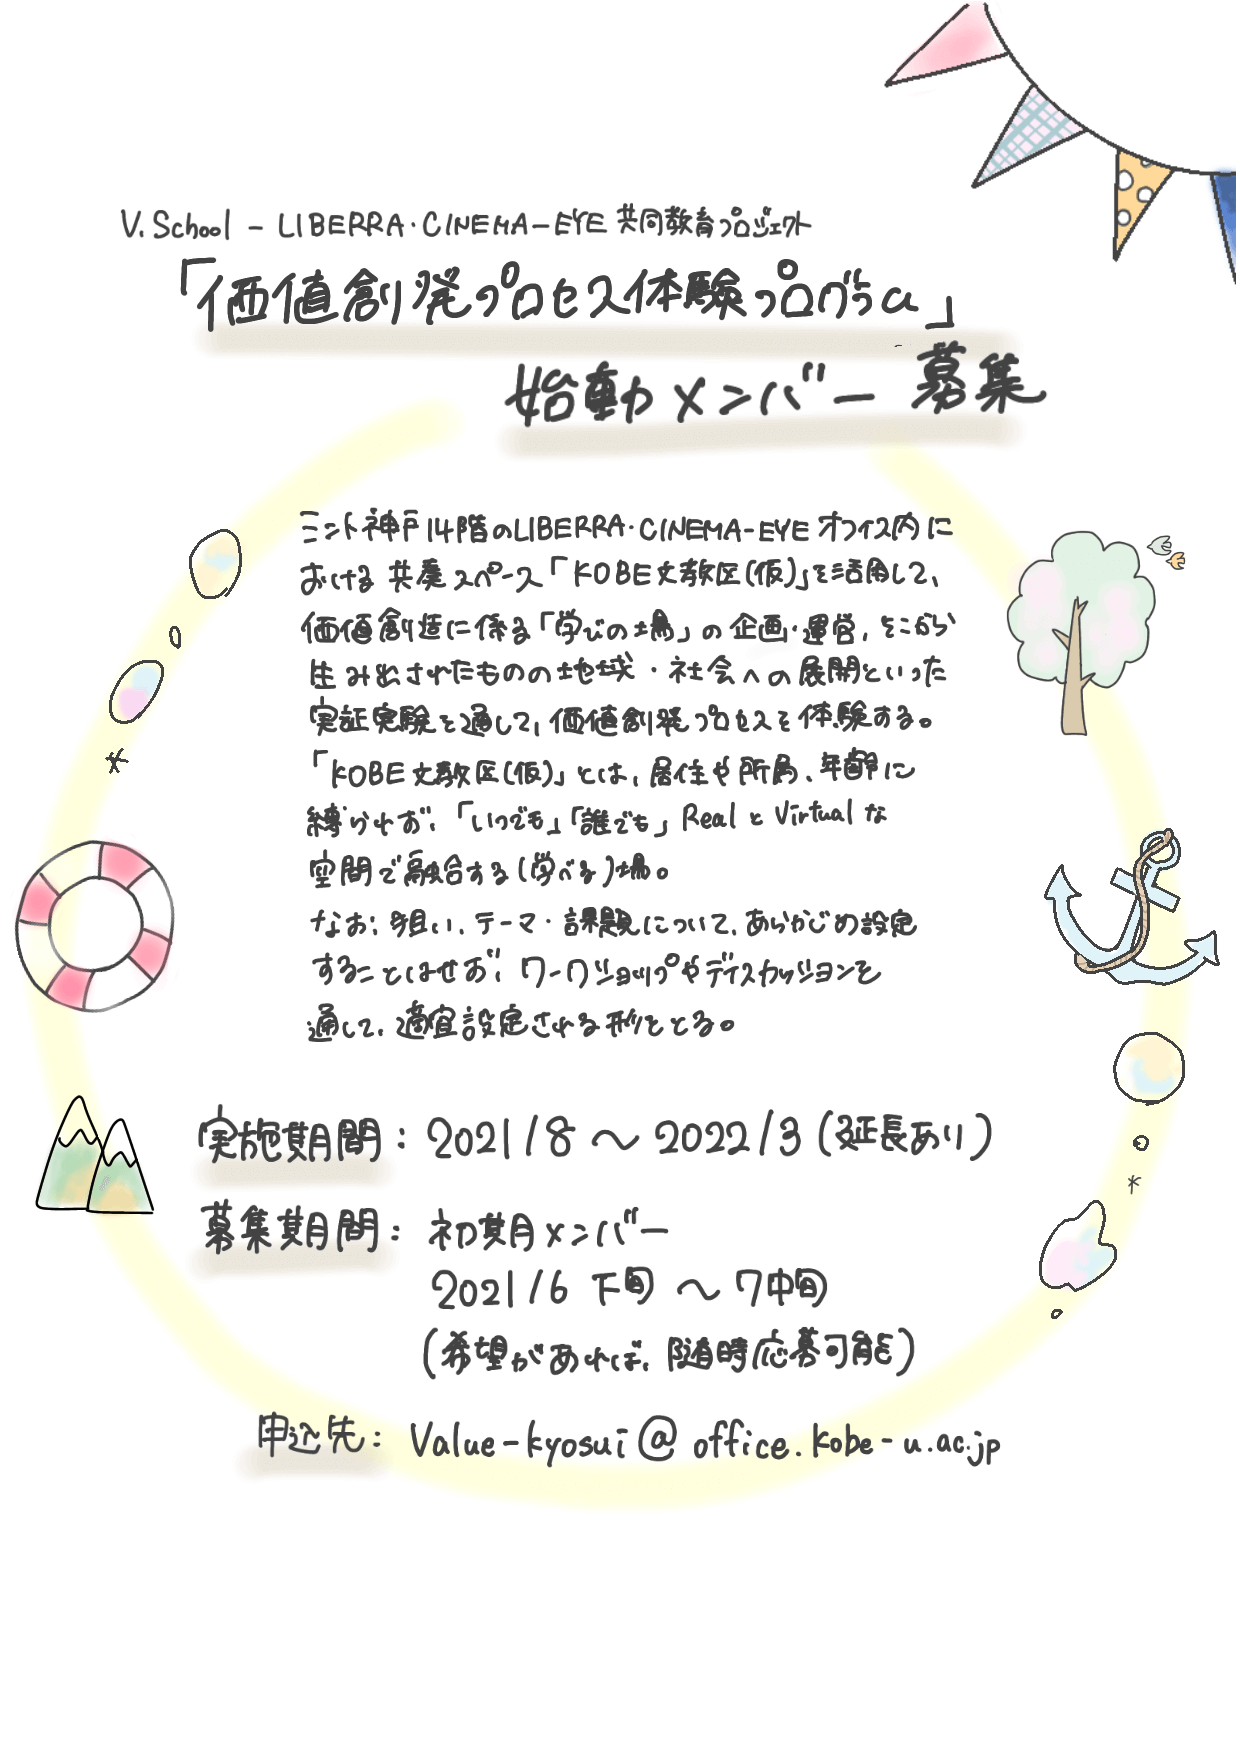 V.School - LIBERRA・CINEMA-EYE 共同教育プロジェクト
「価値創発プロセス体験プログラム」
始動メンバー募集
ミント神戸14階のLIBERRA・CINEMA-EYE オフィス内に
おける 共農スペース「KOBE文教区(仮)」を活用して、
価値創造に係る「学びの場」の企画・運営、そこから
生み出されたものの地域・社会への展開といった
実証実験を通して、価値創発プロセスを体験する。
「KOBE文教区(仮)」とは、居住や所属、年齢に
縛られず、「いつでも」「誰でも」RealとVirtualな
空間で融合する(学べる)場。
なお、狙い、テーマ・課題について、あらかじめ設定
することはせず、ワークショップやディスカッションを
通して、適宜設定される形をとる。
実施期間：2021/8～2022/3(延長あり)
募集期間：初期メンバー
2021/6 下旬 ～ 7中旬
(希望があれば、随時応募可能)
申込先：Value-kyosui@office.kobe-u.ac.jp